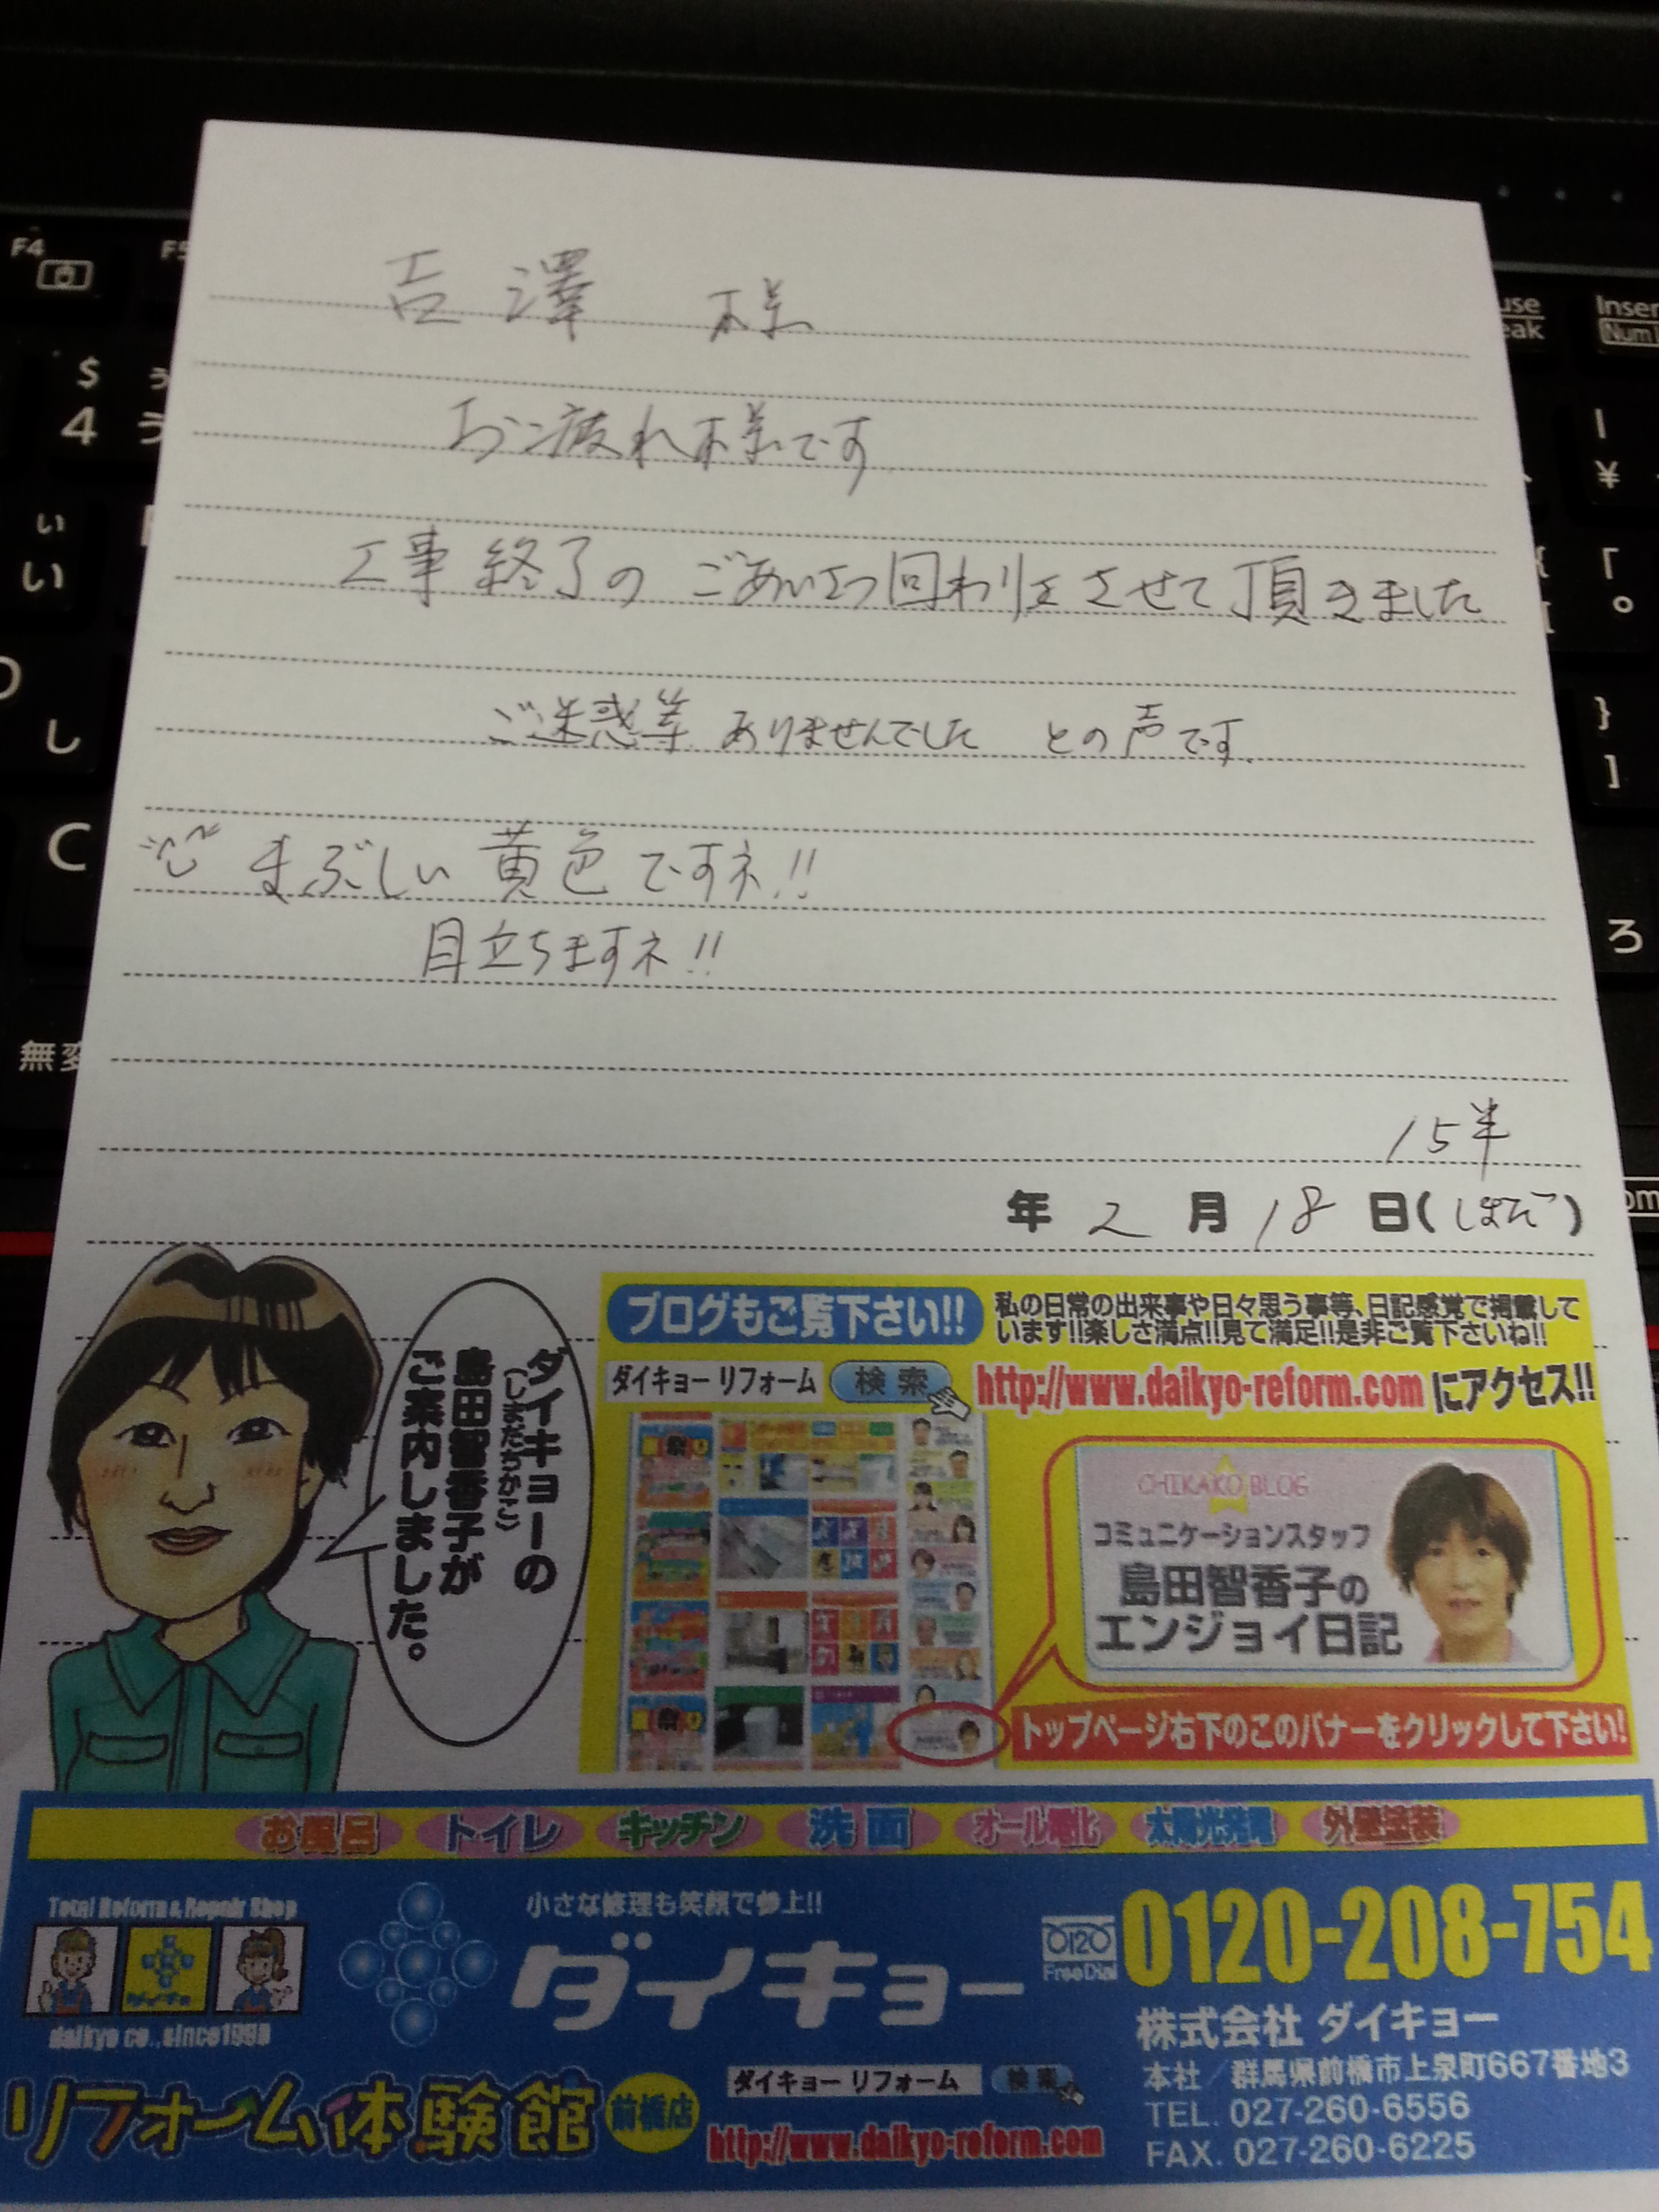 吉澤 様
お疲れ様です
工事終了の ごあいさつ回わりをさせて頂きました
ご迷惑等 ありませんでした との声です。
まぶしい 黄色ですネ!!
目立ちますネ!!
15半
年 2 月 18 日(しまだ)
ダイキョーの
(しまだちかこ)
島田智香子が
ご案内しました。
ブログもご覧下さい!!
私の日常の出来事や日々思う事等、日記感覚で掲載して
います!!楽しさ満点!!見て満足!!是非ご覧下さいね!!
ダイキョー リフォーム 検索
http://www.daikyo-reform.com にアクセス!!
CHIKAKO BLOG
コミュニケーションスタッフ
島田智香子の
エンジョイ日記
トップページ右下のこのバナーをクリックして下さい!
お風呂 トイレ キッチン 洗面 オール電化 太陽光発電 外壁塗装
Total Reform & Repair Shop
daikyo co.,since1998
小さな修理も笑顔で参上!!
ダイキョー
0120
FreeDial
0120-208-754
株式会社 ダイキョー
本社/群馬県前橋市上泉町667番地3
TEL. 027-260-6556
FAX. 027-260-6225
リフォーム体験館 前橋店
ダイキョー リフォーム 検索
http://www.daikyo-reform.com
F4
$
4
う
い
い
し
C
Inser
¥
「
°
}
]
ろ